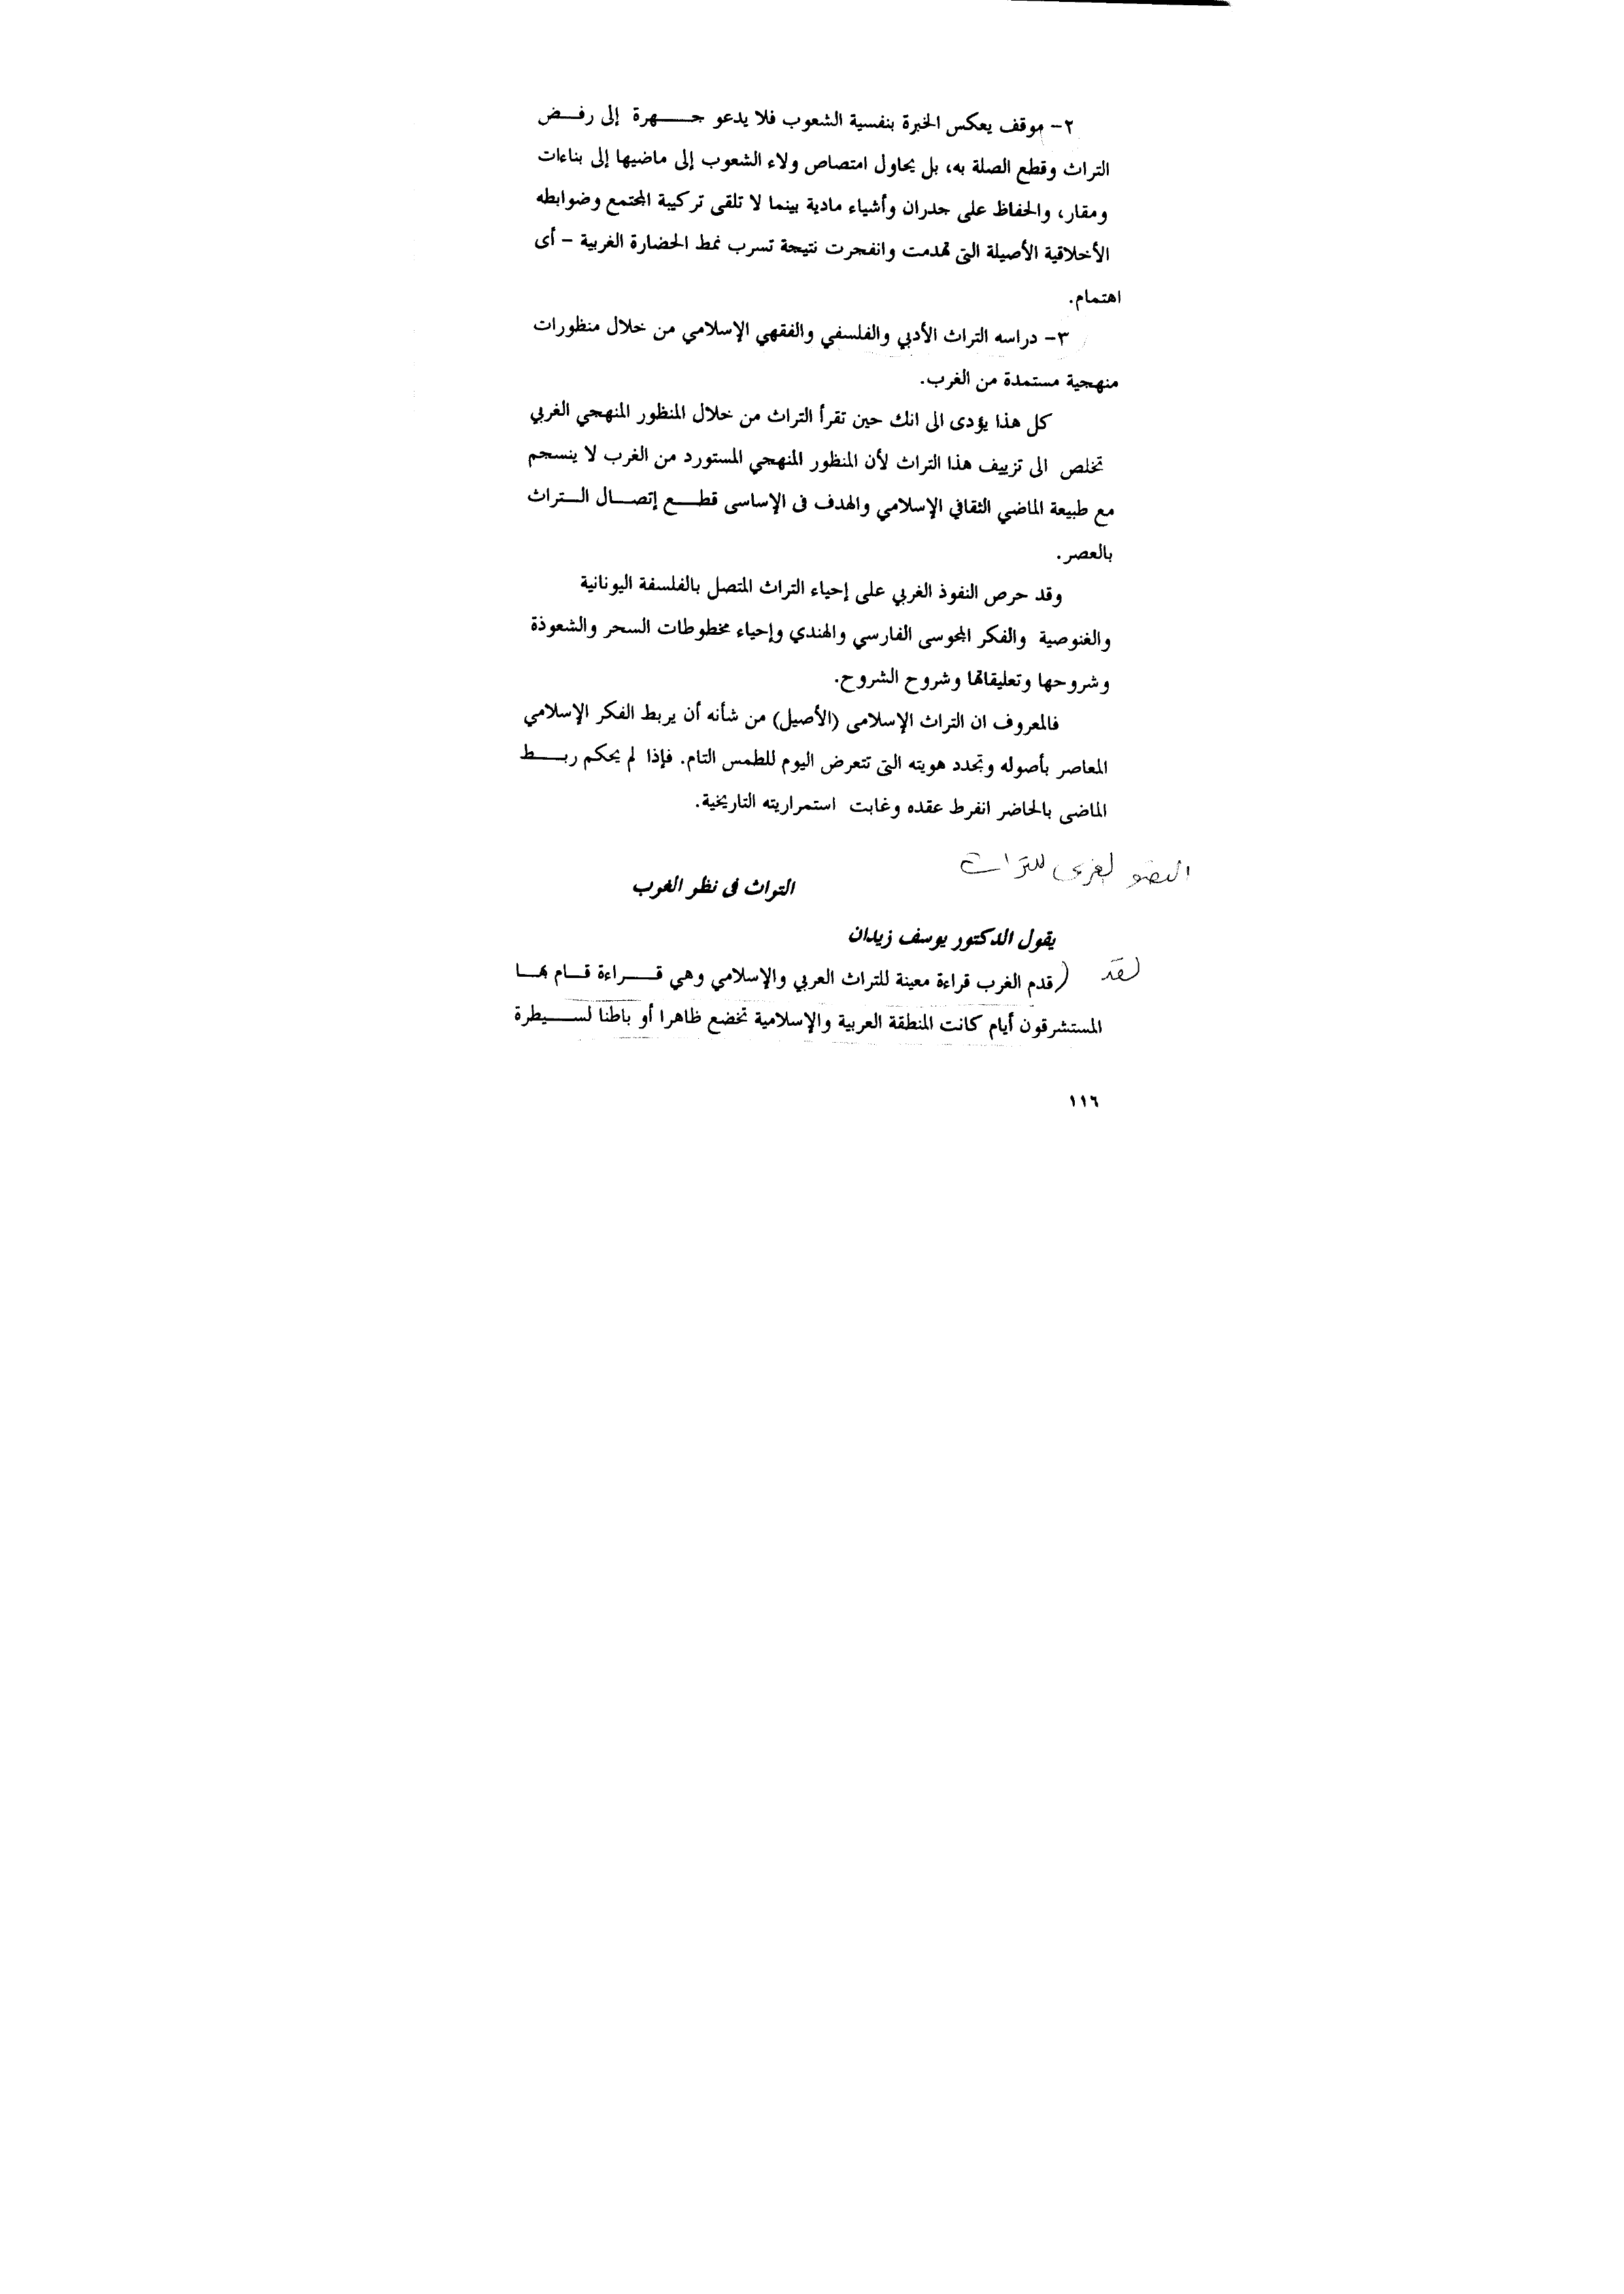 ٢- موقف يعكس الخبرة بنفسية الشعوب فلا يدعو جهرة إلى رفض
التراث وقطع الصلة به، بل يحاول امتصاص ولاء الشعوب إلى ماضيها إلى بناءات
ومقار، والحفاظ على جدران وأشياء مادية بينما لا تلقى تركيبة المجتمع وضوابطه
الأخلاقية الأصيلة التى تهدمت وانفجرت نتيجة تسرب نمط الحضارة الغربية – أى
اهتمام.
٣- دراسه التراث الأدبي والفلسفي والفقهي الإسلامي من خلال منظورات
منهجية مستمدة من الغرب.
كل هذا يؤدى الى انك حين تقرأ التراث من خلال المنظور المنهجي الغربي
تخلص الى تزييف هذا التراث لأن المنظور المنهجي المستورد من الغرب لا ينسجم
مع طبيعة الماضي الثقافي الإسلامي والهدف فى الإساسى قطع إتصال التراث
بالعصر.
وقد حرص النفوذ الغربي على إحياء التراث المتصل بالفلسفة اليونانية
والغنوصية والفكر المجوسى الفارسي والهندي وإحياء مخطوطات السحر والشعوذة
وشروحها وتعليقاتها وشروح الشروح.
فالمعروف ان التراث الإسلامى (الأصيل) من شأنه أن يربط الفكر الإسلامي
المعاصر بأصوله وتجدد هويته التى تتعرض اليوم للطمس التام. فإذا لم يحكم ربط
الماضى بالحاضر انفرط عقده وغابت استمراريته التاريخية.
للتراث
التراث فى نظر الغرب
يقول الدكتور يوسف زيدان
لقد (قدم الغرب قراءة معينة للتراث العربي والإسلامي وهي قراءة قام بها
المستشرقون أيام كانت المنطقة العربية والإسلامية تخضع ظاهرا أو باطنا لسيطرة
١١٦